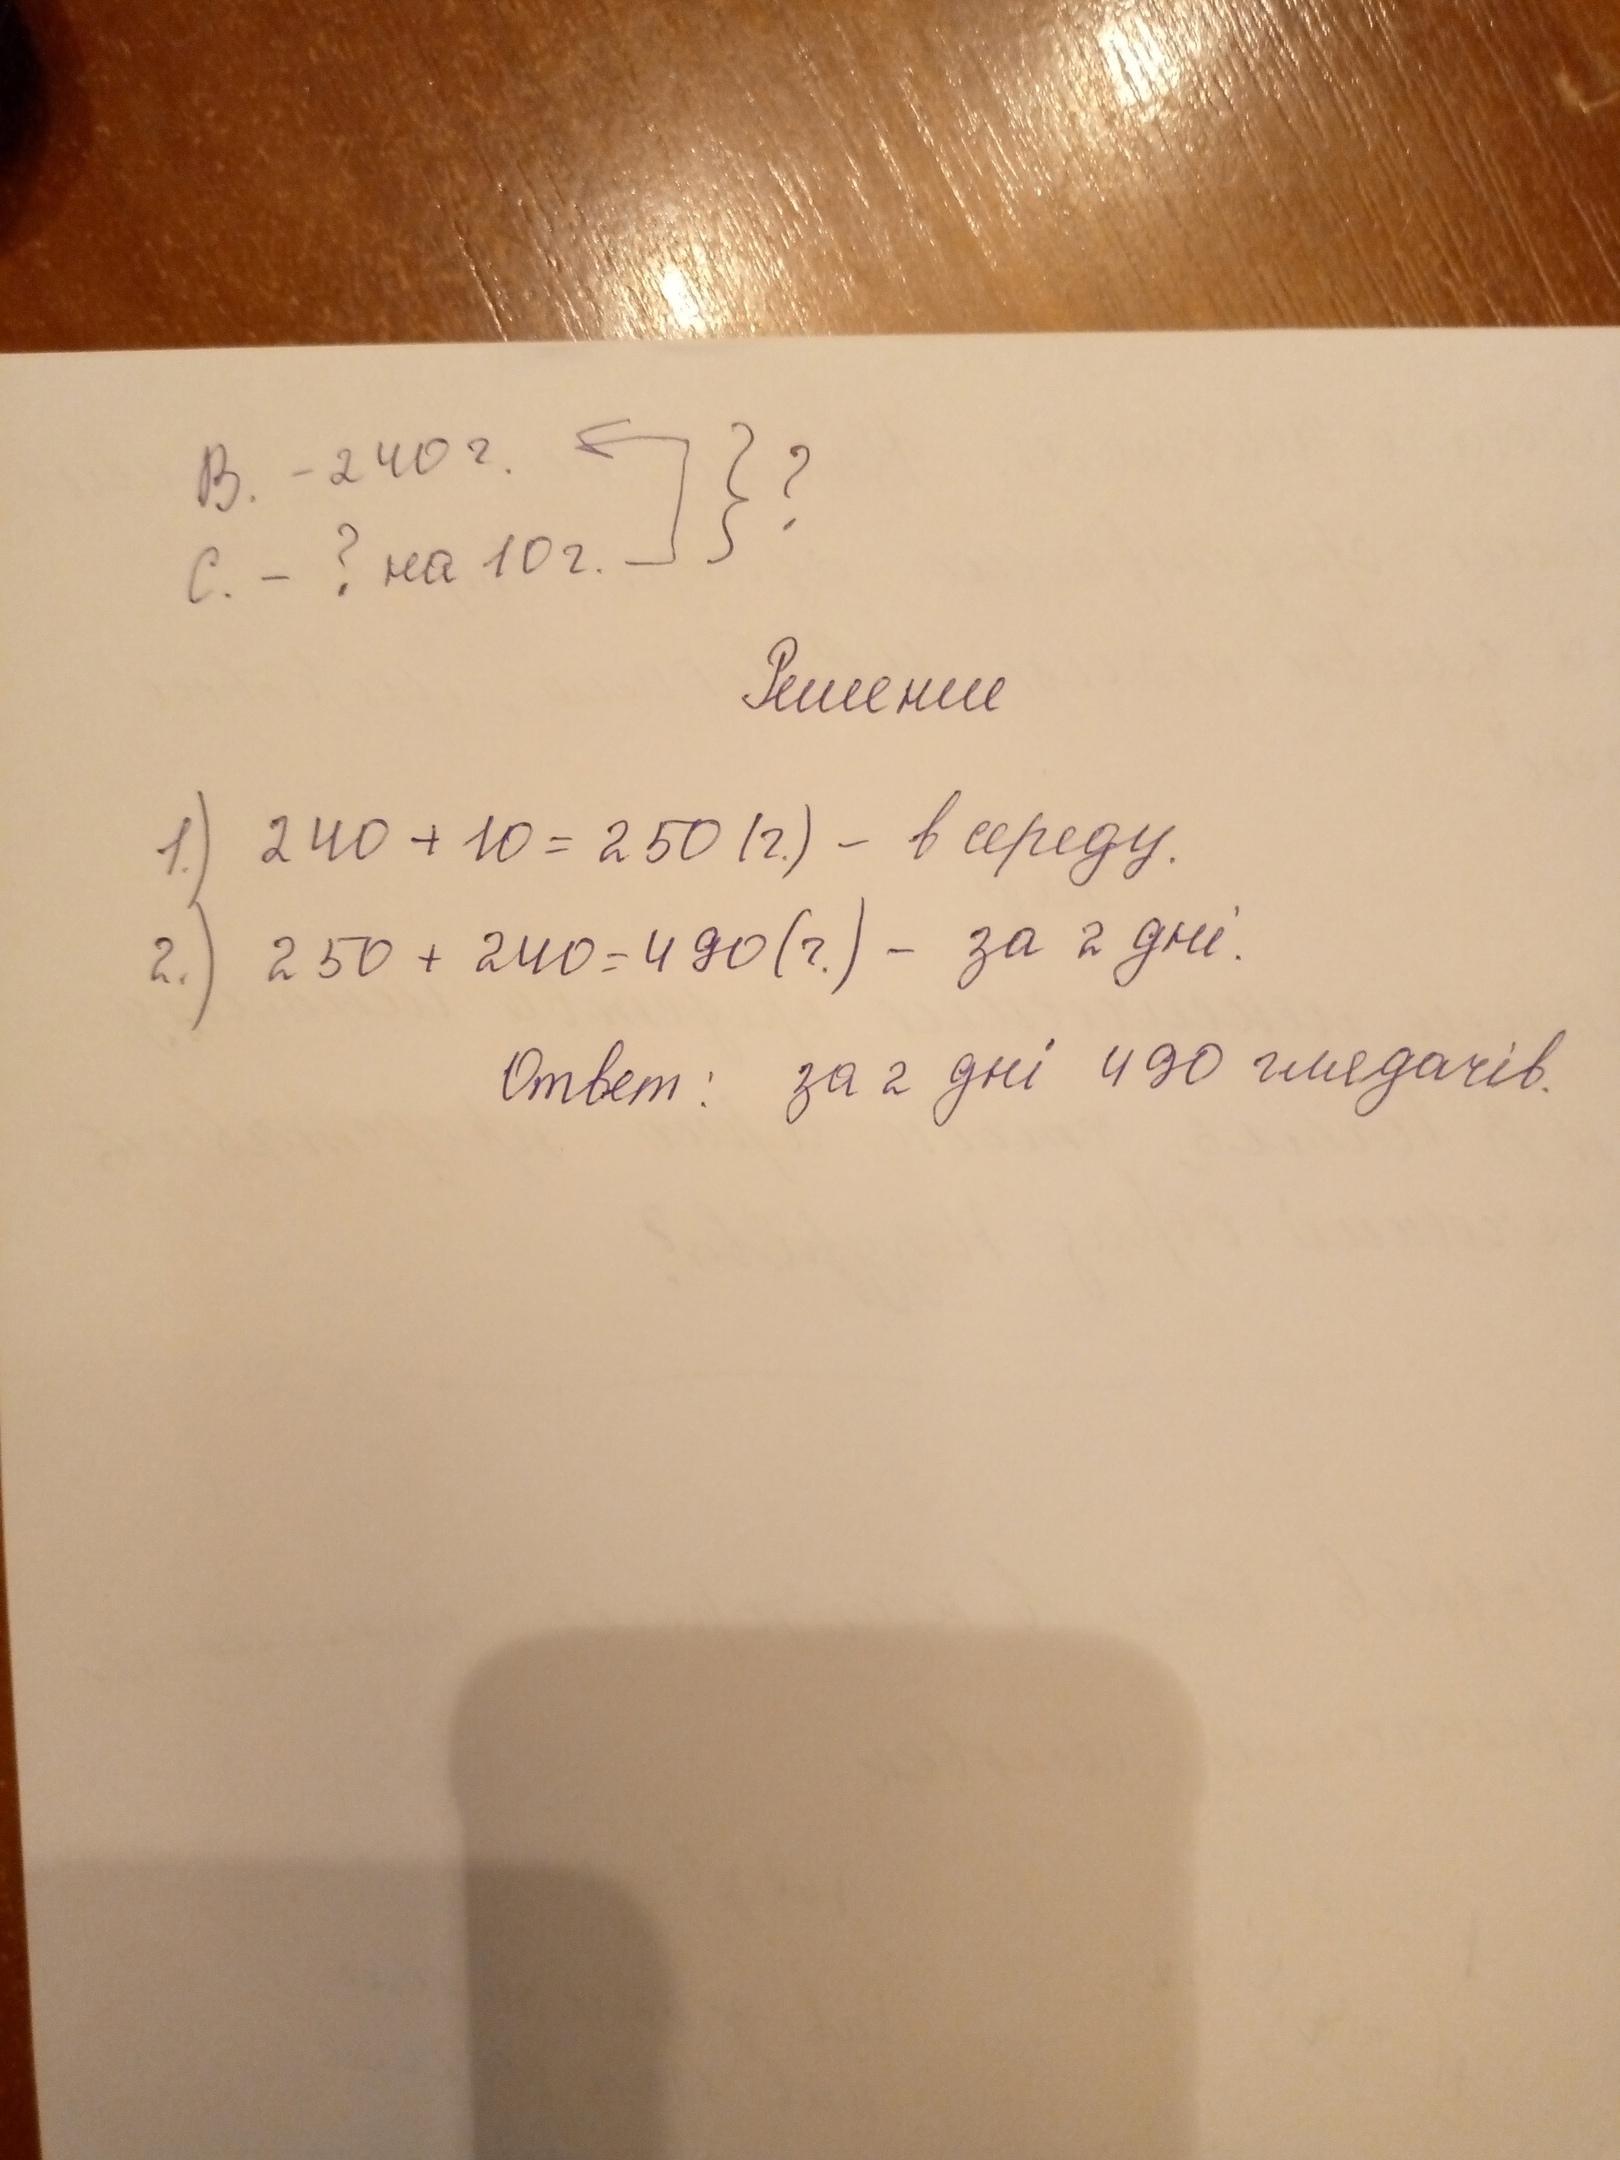 В. - 240 г. } ?
С. - ? на 10 г.
Решение
1.) 240 + 10 = 250 (г.) - в середу.
2.) 250 + 240 = 490 (г.) - за 2 дні.
Ответ: за 2 дні 490 глядачів.